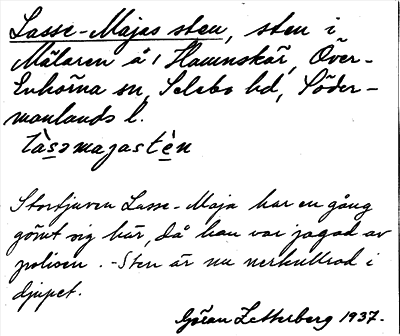 Lasse-Majas sten, sten i
Mälaren å, Hamnskär, Över-
Enhörna sn, Selebo hd, Söder-
manlands l.
làsəmajastèn
Stortjuven Lasse-Maja har en gång
gömt sig här, då han var jagad av
polisen. - Sten är nu nerkullrad i
djupet.
Göran Zetterberg 1937.